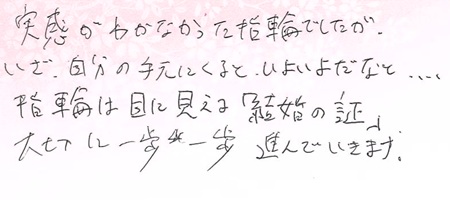 実感がわかなかった指輪でしたが、
いざ、自分の手元にくると、いよいよだなと....
指輪は目に見える「結婚の証」
大切に一歩一歩 進んでいきます。